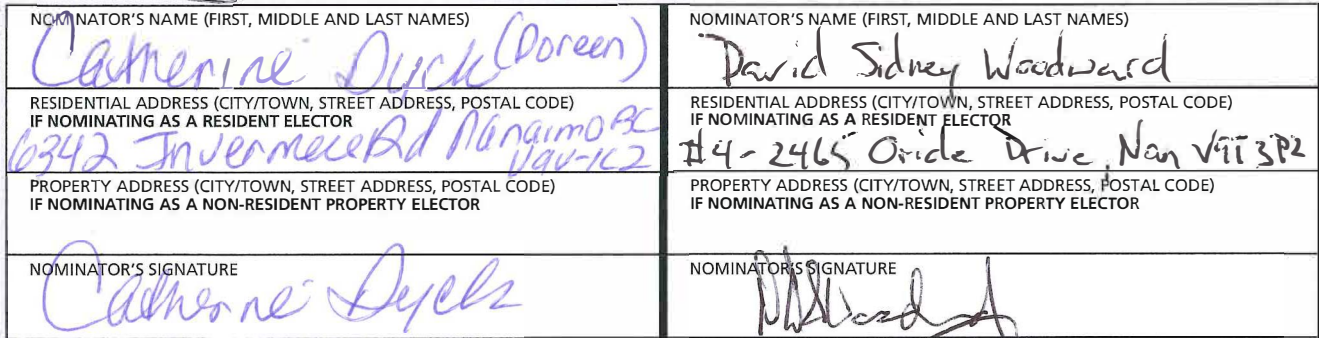 NOMINATOR'S NAME (FIRST, MIDDLE AND LAST NAMES)
Catherine Dyck (Doreen)
RESIDENTIAL ADDRESS (CITY/TOWN, STREET ADDRESS, POSTAL CODE)
IF NOMINATING AS A RESIDENT ELECTOR
6342 Invermece Rd Nanaimo BC
V9V-1C2
PROPERTY ADDRESS (CITY/TOWN, STREET ADDRESS, POSTAL CODE)
IF NOMINATING AS A NON-RESIDENT PROPERTY ELECTOR
NOMINATOR'S SIGNATURE
Catherine Dyck
NOMINATOR'S NAME (FIRST, MIDDLE AND LAST NAMES)
David Sidney Woodward
RESIDENTIAL ADDRESS (CITY/TOWN, STREET ADDRESS, POSTAL CODE)
IF NOMINATING AS A RESIDENT ELECTOR
#4-2465 Drive, Nan V9T 3P2
PROPERTY ADDRESS (CITY/TOWN, STREET ADDRESS, POSTAL CODE)
IF NOMINATING AS A NON-RESIDENT PROPERTY ELECTOR
NOMINATOR'S SIGNATURE